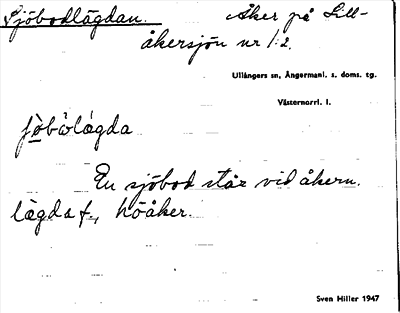 Sjöbodlägdan. Åker på Lill-
åkersjön nr 1:2.
Ullångers sn, Ångermanl. s. doms. tg.
Västernorrl. l.
En sjöbod står vid åkern.
lägda f., höåker.
Sven Hiller 1947